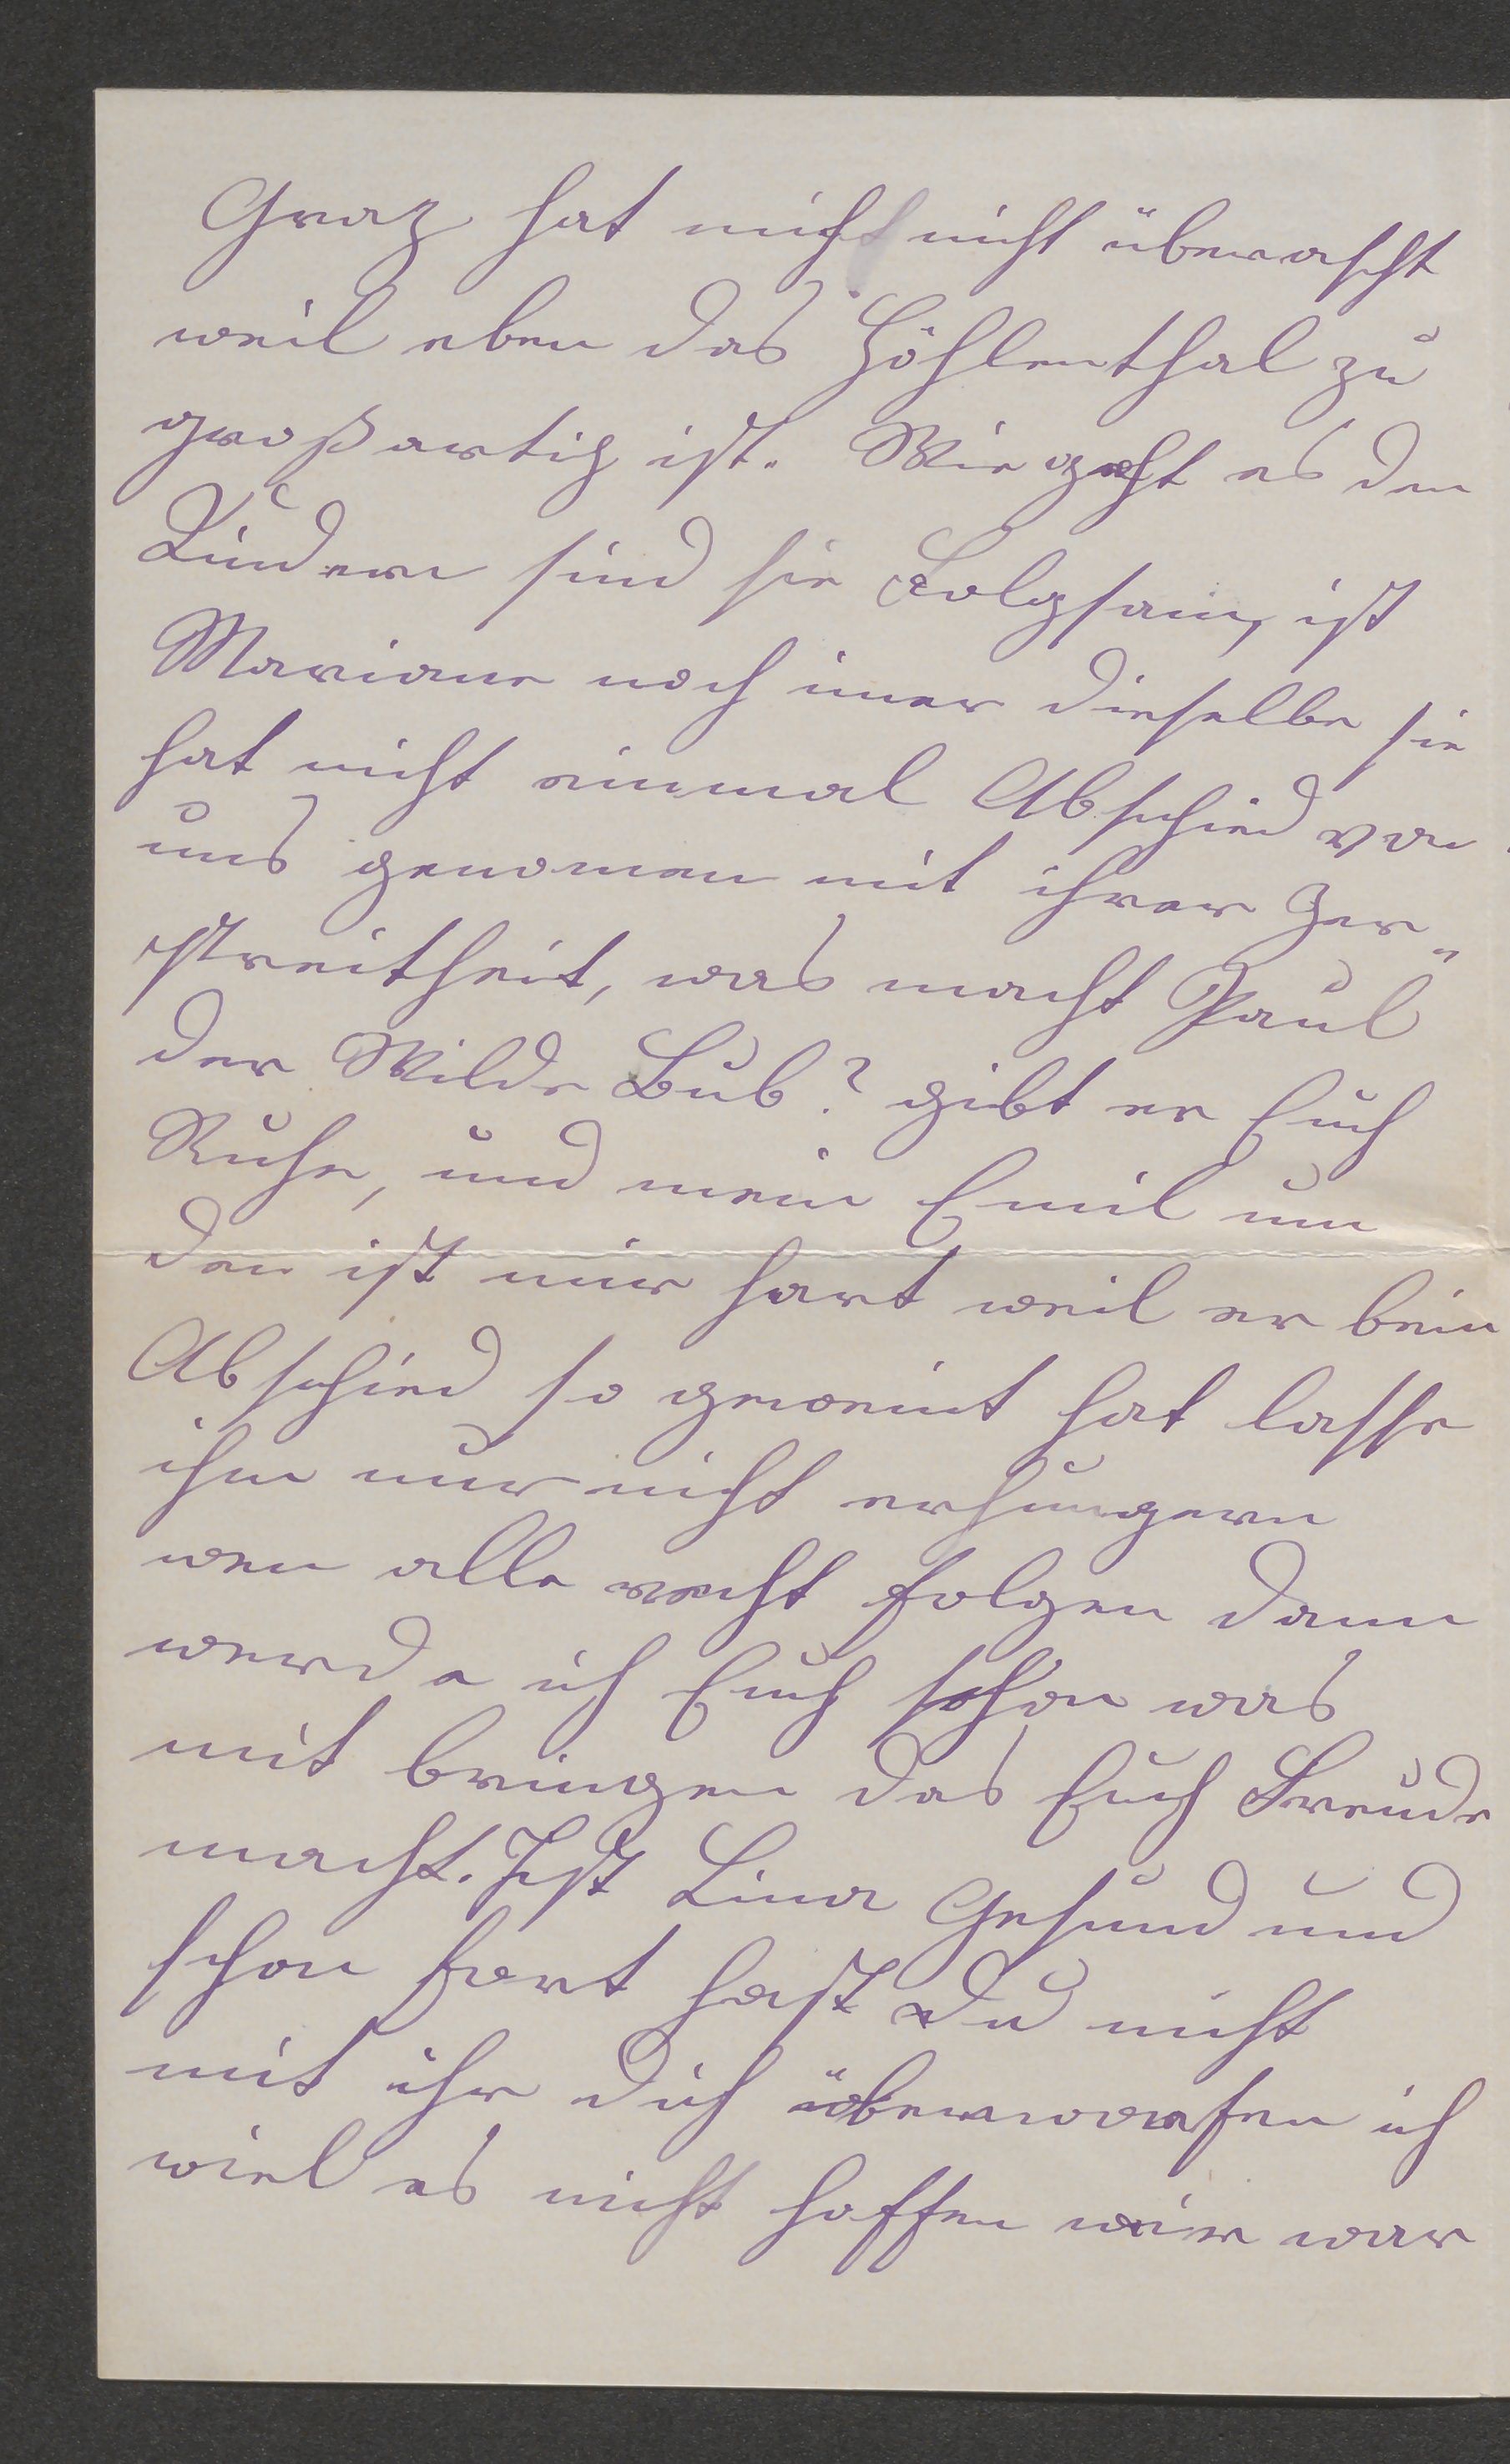 Graz hat mich nicht überascht
weil eben das Höhlenthal zu
großartig ist. Wie geht es den
Kindern sind sie Folgsam, ist
Mariane noch imer dieselbe sie
hat nicht einmal Abschied von
uns genomen mit ihrer Zer„
streitheit, was macht Paul
der Wilde Bub? gibt er Euch
Ruhe, und mein Emil um
den ist mir hart weil er beim
Abschied so geweint hat lasse
ihm nur nicht erhungern
wen alle recht folgen dann
werde ich Euch schon was
mit bringen das Euch Freude
macht. Ist Lina Gesund und
schon fort hast Du nicht
mit ihr dich überworfen ich
wiel es nicht hoffen mir war